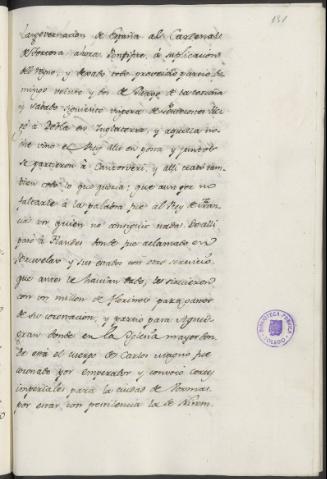 151
la governacion de España al Cardenal
de Tortosa, ahora Pontifice, à suplicacion
del Reyno, y dexado todo proveido partio Do-
mingo veinte y dos de Mayo de la Coruña
y Sabado siguiente vigera de
à Dobla en Inglaterra, y aquella no-
che vino el Rey alli en posta y juntos
se partieron à Cantorveri, y alli trató tam-
bien todo lo que queria; que aun por no
faltarle à la palabra fue al Rey de Fran-
cia con quien no consiguio nada. De alli
pasó à Flandes donde fue aclamado en
Bruselas y sus estados con otro servicio
que antes le havian dado, les sirvieron
con un millon de florines para gastos
de su coronacion, y partió para Aquis-
gran donde en la Iglesia mayor don-
de está el cuerpo de Carlos magno fue
coronado por emperador y convocó Cortes
imperiales para la ciudad de Bormes
por estar con pestilencia la de Nirem-
BIBLIOTECA PUBLICA
TOLEDO